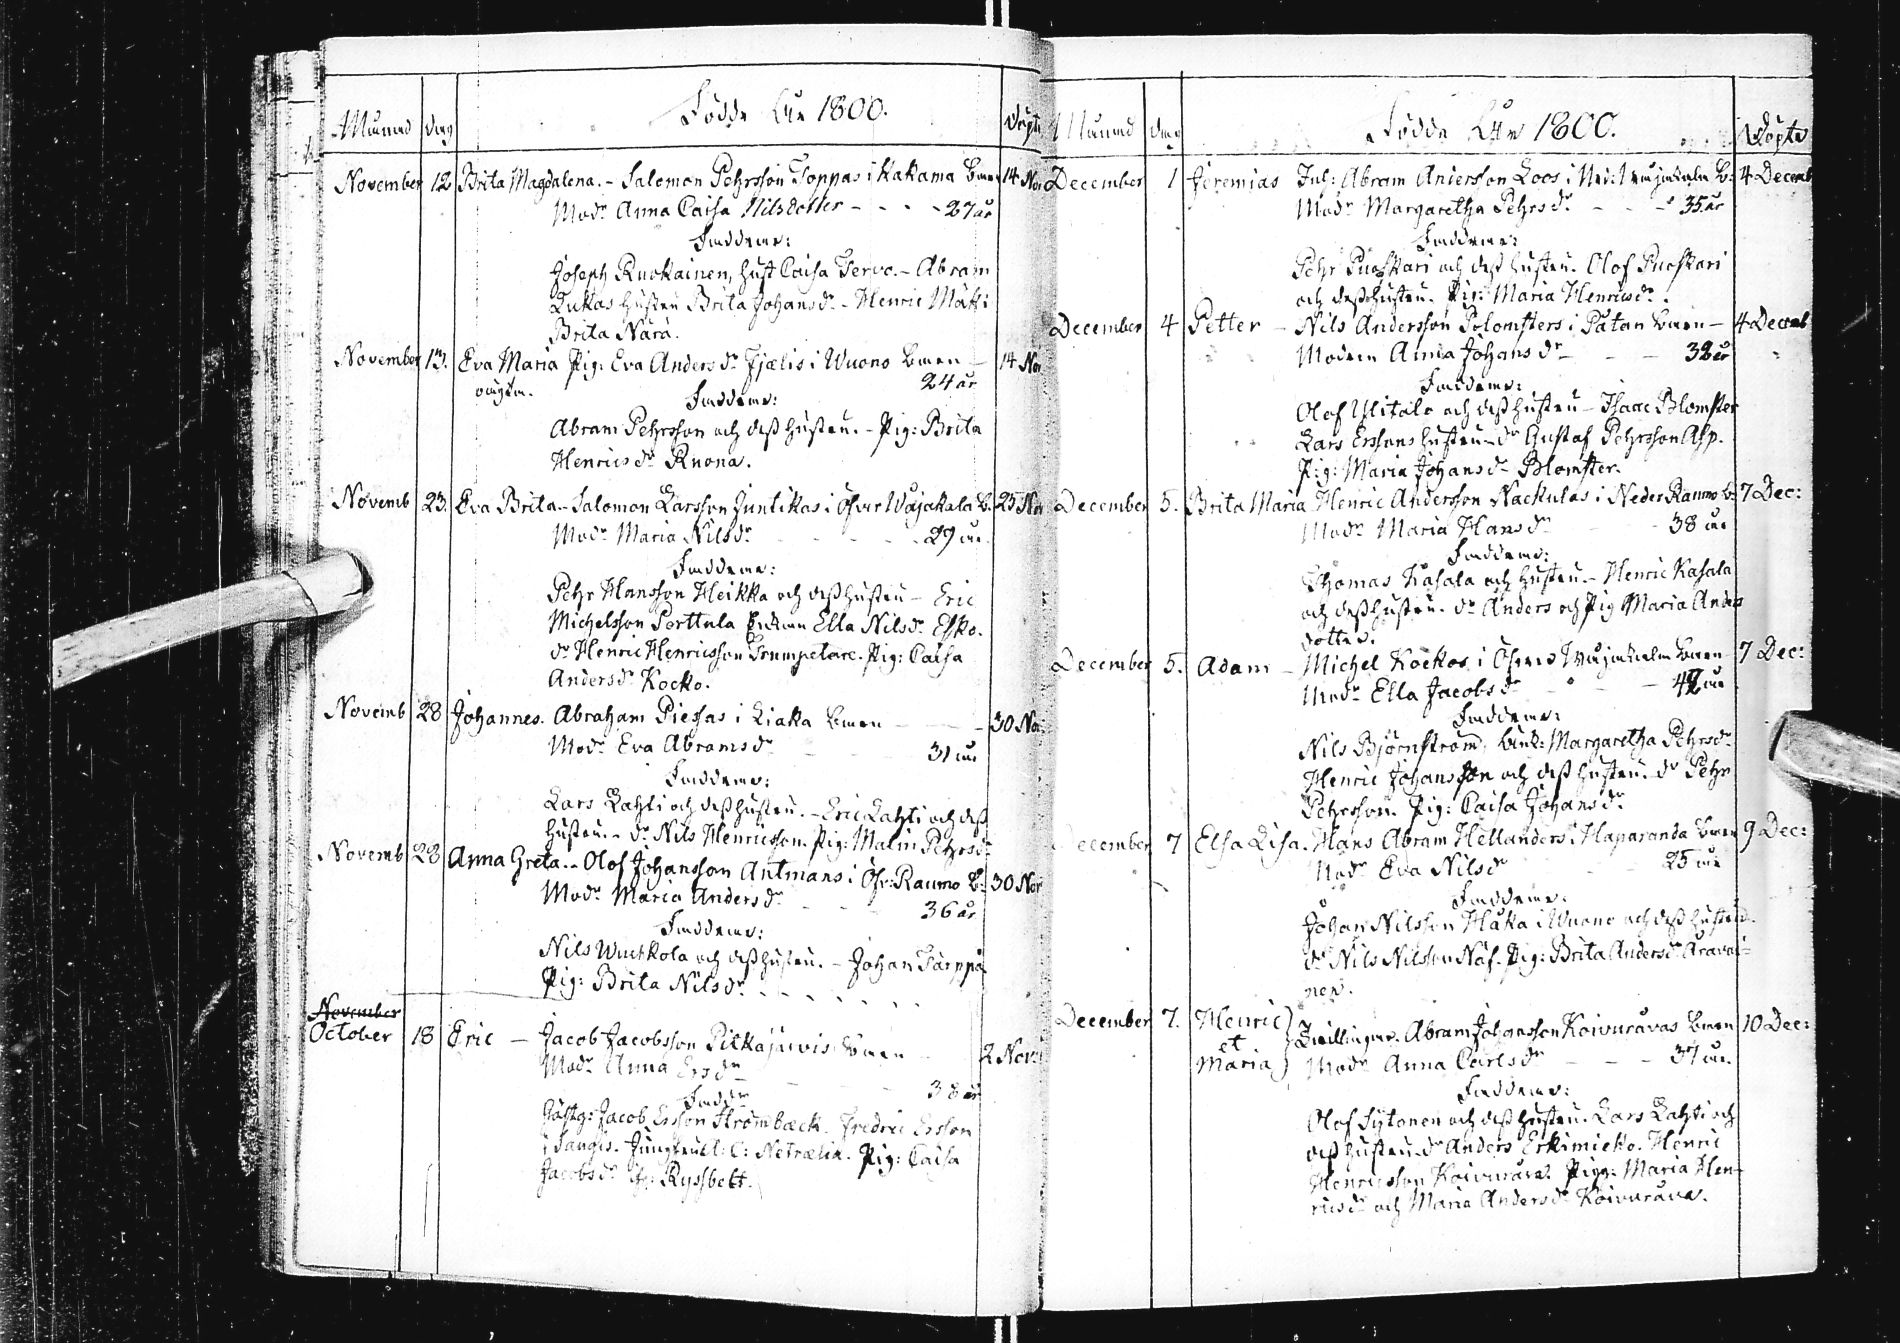 Månad dag Födde År 1800. Döpte
November 12 Brita Magdalena. - Salomon Pehrsson Toppas i Kakama barn 14 Nov
Modr Anna Caisa Nilsdotter - - - - 27 år
Faddrarne:
Joseph Ruokainen, hust Caisa Tervo. - Abram
Lukas hustru Brita Johansdr - Henric Mäki
Brita Nara.
November 13. Eva Maria Pig: Eva Andersdr Fjælis i Wuono barn - 14 Nov
oägta. 24 år
Faddrarne:
Abram Pehrsson och dess hustru. - Pig: Brita
Henricsdr Ruona.
Novemb 23. Eva Brita - Salomon Larsson Juntikas i Öfver Wojakala B. 25 Nov
Modr Maria Nilsdr - - - - 29 år
Faddrarne:
Pehr Hansson Heikka och dess hustru - Eric
Michelsson Perttula Enkan Ella Nilsdr Esko.
dr Henric Henricsson Trumpetare. Pig: Caisa
Andersdr Kocko.
Novemb 28 Johannes. Abraham Piessas i Liaka barn - - 30 Nov:
Modr Eva Abramsdr - - 31 år
Faddrarne:
Lars Lahti och dess hustru. - Eric Lahti och dess
hustru. - dr Nils Henricsson. Pig: Malin Pehrsdr
Novemb 28 Anna Greta. - Olof Johansson Antmans i Öfv: Raumo B: 30 Nov
Modr Maria Andersdr - - - 36 år
Faddrarne:
Nils Wuotkola och dess hustru. - Johan Tärppä
Pig: Brita Nilsdr - - - - - - -
November
October 18 Eric - Jacob Jacobsson Pitkäjärvis barn 2 Nov:
Modr Anna Ersdr - - - 38 år
Faddr
Gästg: Jacob Ersson Strömbäck. Fredric Ersson
i Sangis. Jungfru Pig: Caisa
Jacobsdr
Månad dag Födde År 1800. Döpte
December 1 Jeremias Inh: Abram Andersson Loos i B: 4 Decemb
Modr Margaretha Pehrsdr - - - 35 år
Faddrarne:
Pehr Puoskari och dess hustru. Olof Puoskari
och dess hustru. Pig: Maria Henricsdr.
December 4 Petter - Nils Andersson Polomsters i Pätan barn - 4 Decemb
Modren Anna Johansdr - - - 38 år
Faddrarne:
Olof Ylitalo och dess hustru - Isaac Blomster
Lars Erssons hustru - dr Gustaf Pehrsson Asp.
Pig: Maria Johansdr Blomster.
December 5. Brita Maria Henric Andersson Nackulas i Neder Raumo B: 7 Dec:
Modr Maria Hansdr - - 38 år
Faddrarne:
Thomas Kasala och hustru. - Henric Kasala
och dess hustru. dr Anders och Pig Maria Anders
dotter.
December 5. Adam - Michel Kockos i Öfvre barn 7 Dec:
Modr Ella Jacobsdr - - - 42 år
Faddrarne:
Nils Björnström, Enk: Margaretha Pehrsdr
Henric Johansson och dess hustru. dr Pehr
Pehrsson. Pig: Caisa Johansdr
December 7 Elsa Lisa. Hans Abram Hellanders i Haparanda barn 9 Dec:
Modr Eva Nilsdr 25 år
Faddrarne:
Johan Nilsson Häka i Wuono och dess hustru.
dr Nils Nilsson Näf. Pig: Brita Andersdr Aravai-
nen.
December 7. Henric Tvillingar. Abram Johansson Koivuråvas barn 10 Dec:
et
Maria Modr Anna Carlsdr - - - 37 år.
Faddrarne:
Olof Sytonen och dess hustru. Lars Lahti och
dess hustru. dr Anders Erkimieko. Henric
Henricsson Koivuråva. Pigr: Maria Hen-
ricsdr och Maria Andersdr Koivuråva.